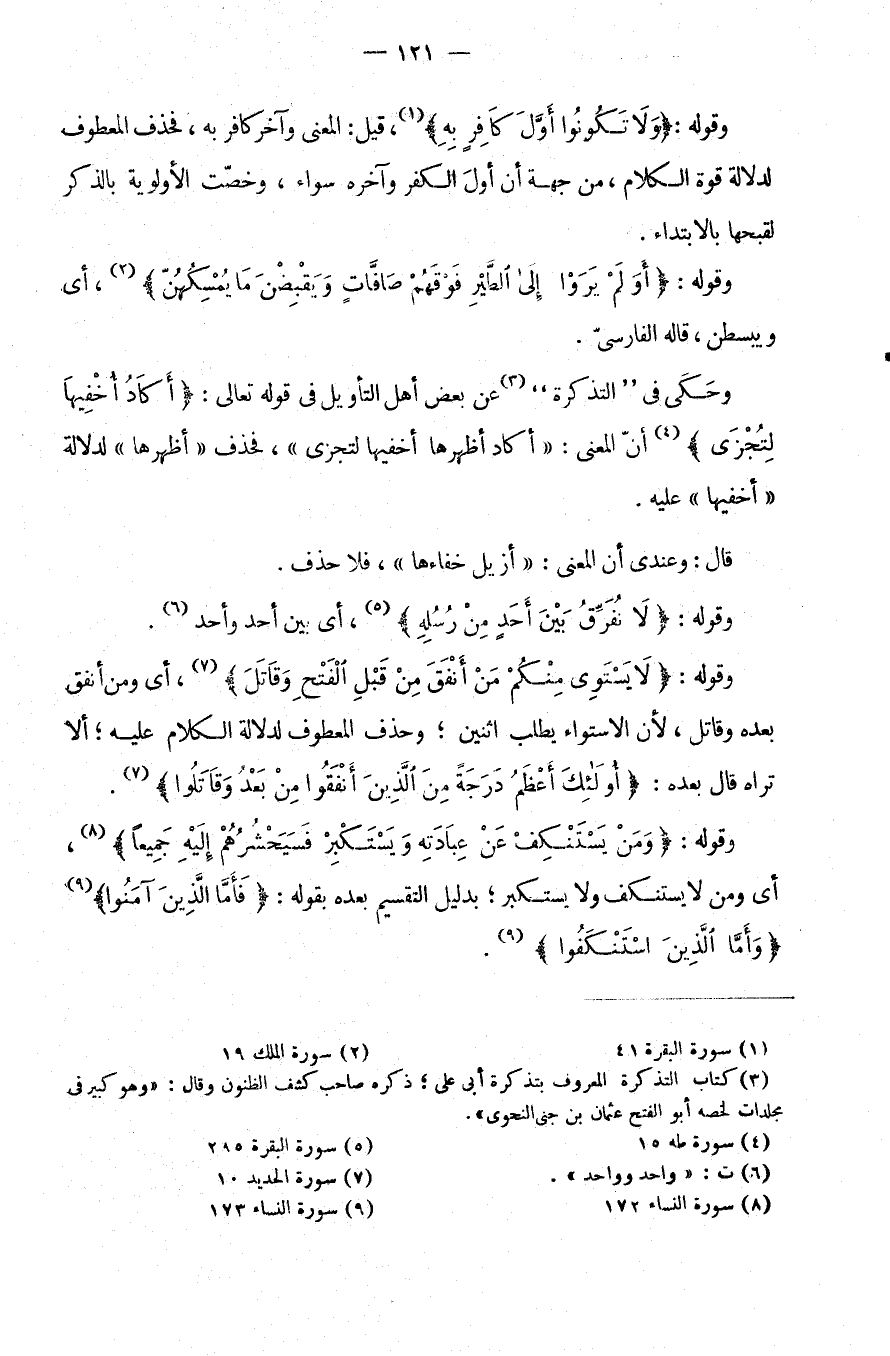 — ١٢١ —
وقوله : ﴿وَلَا تَكُونُوا أَوَّلَ كَافِرٍ بِهِ﴾(١)، قيل: المعنى وآخر كافر به ، فحذف المعطوف
لدلالة قوة الكلام ، من جهة أن أولَ الكفر وآخره سواء ، وخصّت الأولوية بالذكر
لقبحها بالابتداء .
وقوله : ﴿ أَوَ لَمْ يَرَوْا إِلَىٰ ٱلطَّيْرِ فَوْقَهُمْ صَافَّاتٍ وَيَقْبِضْنَ مَا يُمْسِكُهُنّ ﴾ (٢) ، أى
ويبسطن ، قاله الفارسىّ .
وحَكَى فى ” التذكرة “ (٣) عن بعض أهل التأويل فى قوله تعالى : ﴿ أَكَادُ أُخْفِيهَا
لِتُجْزَى ﴾ (٤) أنّ المعنى : « أكاد أظهرها أخفيها لتجزى » ، فحذف « أظهرها » لدلالة
« أخفيها » عليه .
قال : وعندى أن المعنى : « أزيل خفاءها » ، فلا حذف .
وقوله : ﴿ لَا نُفَرِّقُ بَيْنَ أَحَدٍ مِنْ رُسُلِهِ ﴾ (٥) ، أى بين أحد وأحد (٦) .
وقوله : ﴿ لَا يَسْتَوِى مِنْكُمْ مَنْ أَنْفَقَ مِنْ قَبْلِ ٱلْفَتْحِ وَقَاتَلَ ﴾ (٧) ، أى ومن أنفق
بعده وقاتل ، لأن الاستواء يطلب اثنين ؛ وحذف المعطوف لدلالة الكلام عليه ؛ ألا
تراه قال بعده : ﴿ أُولَـٰئِكَ أَعْظَمُ دَرَجَةً مِنَ ٱلَّذِينَ أَنْفَقُوا مِنْ بَعْدُ وَقَاتَلُوا ﴾ (٧) .
وقوله : ﴿ وَمَنْ يَسْتَنْكِفْ عَنْ عِبَادَتِهِ وَيَسْتَكْبِرْ فَسَيَحْشُرُهُمْ إِلَيْهِ جَمِيعاً ﴾ (٨) ،
أى ومن لا يستنكف ولا يستكبر ؛ بدليل التقسيم بعده بقوله : ﴿ فَأَمَّا الَّذِينَ آمَنُوا﴾(٩)
﴿ وَأَمَّا ٱلَّذِينَ اسْتَنْكَفُوا ﴾ (٩) .
(١) سورة البقرة ٤١ (٢) سورة الملك ١٩
(٣) كتاب التذكرة المعروف بتذكرة أبى على ؛ ذكره صاحب كشف الظنون وقال : «وهو كبير فى
مجلدات لخصه أبو الفتح عثمان بن جنى النحوى».
(٤) سورة طه ١٥ (٥) سورة البقرة ٢٨٥
(٦) ت : « واحد وواحد » . (٧) سورة الحديد ١٠
(٨) سورة النساء ١٧٢ (٩) سورة النساء ١٧٣